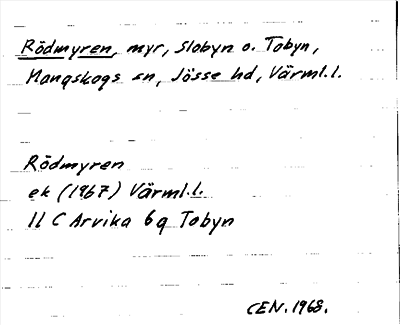 Rödmyren, myr, Slobyn o. Tobyn,
Mangskogs sn, Jösse hd, Värml.l.
Rödmyren
ek (1967) Värml.l.
11 C Arvika 6g Tobyn
CEN. 1968.